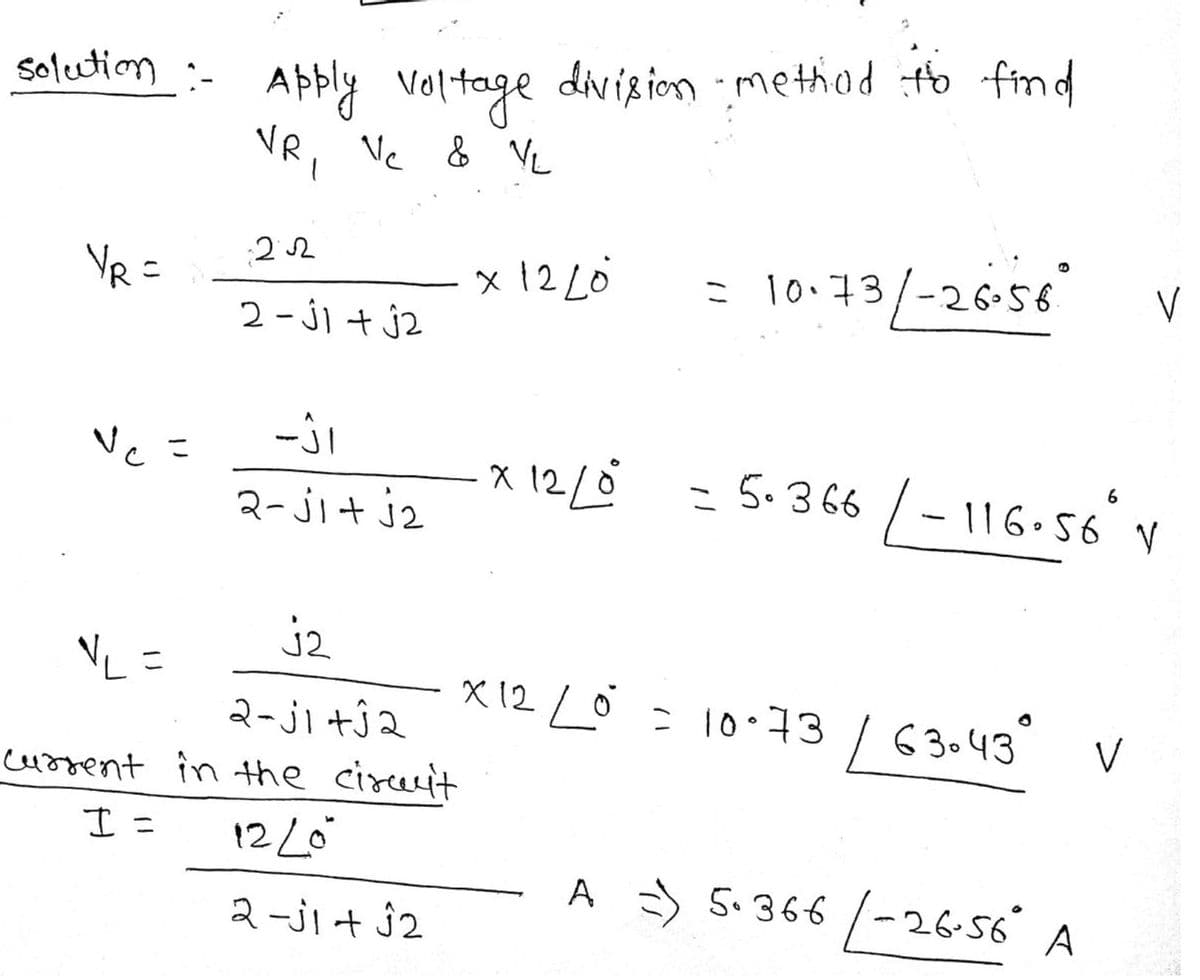 solution :- Apply voltage division - method to find
VR, Vc & VL
VR = 2Ω / (2 - j1 + j2) × 12∠0° = 10.73∠-26.56° V
Vc = -j1 / (2 - j1 + j2) × 12∠0° = 5.366∠-116.56° V
VL = j2 / (2 - j1 + j2) × 12∠0° = 10.73∠63.43° V
current in the circuit
I = 12∠0° / (2 - j1 + j2) A ⇒ 5.366∠-26.56° A